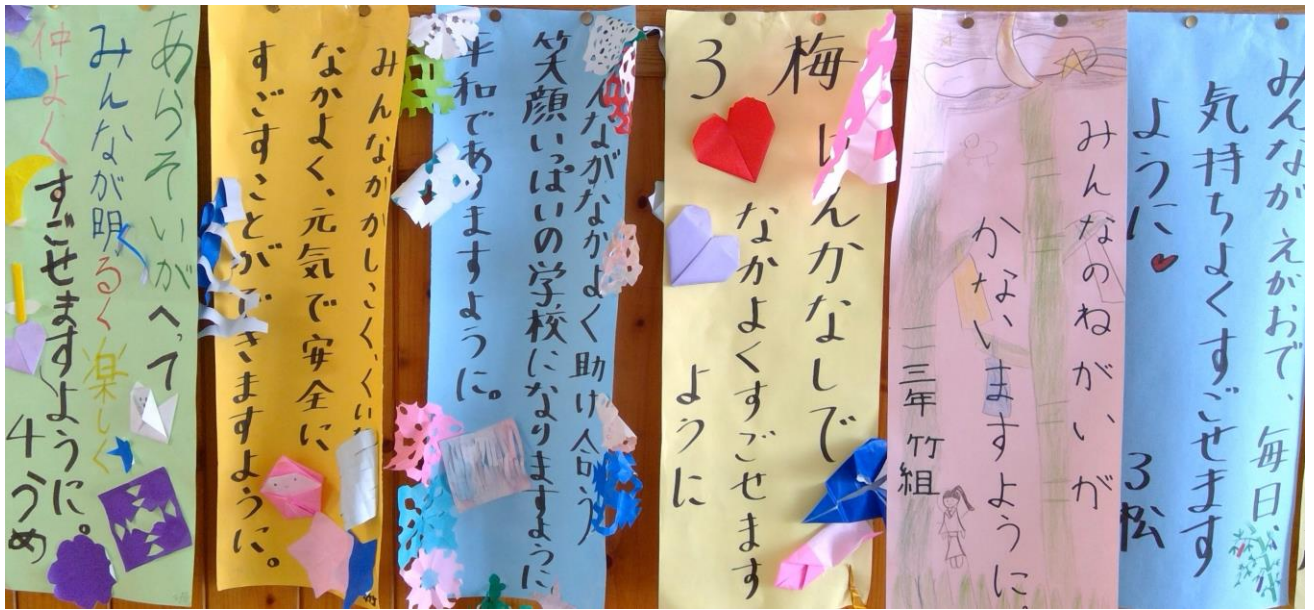 みんなが えがおで、毎日、
気持ちよくすごせます
ように♥
3松
みんなのねがいが
かないますように。
三年 竹組
けんかなしで
なかよくすごせます
ように
梅
3
んながなかよく助け合う
笑顔いっぱいの学校になりますように
平和でありますように。
みんながかしこく、
なかよく、元気で安全に
すごすことができますように。
あらそいがへって
みんなが明るく楽しく
仲よくすごせますように。
4うめ